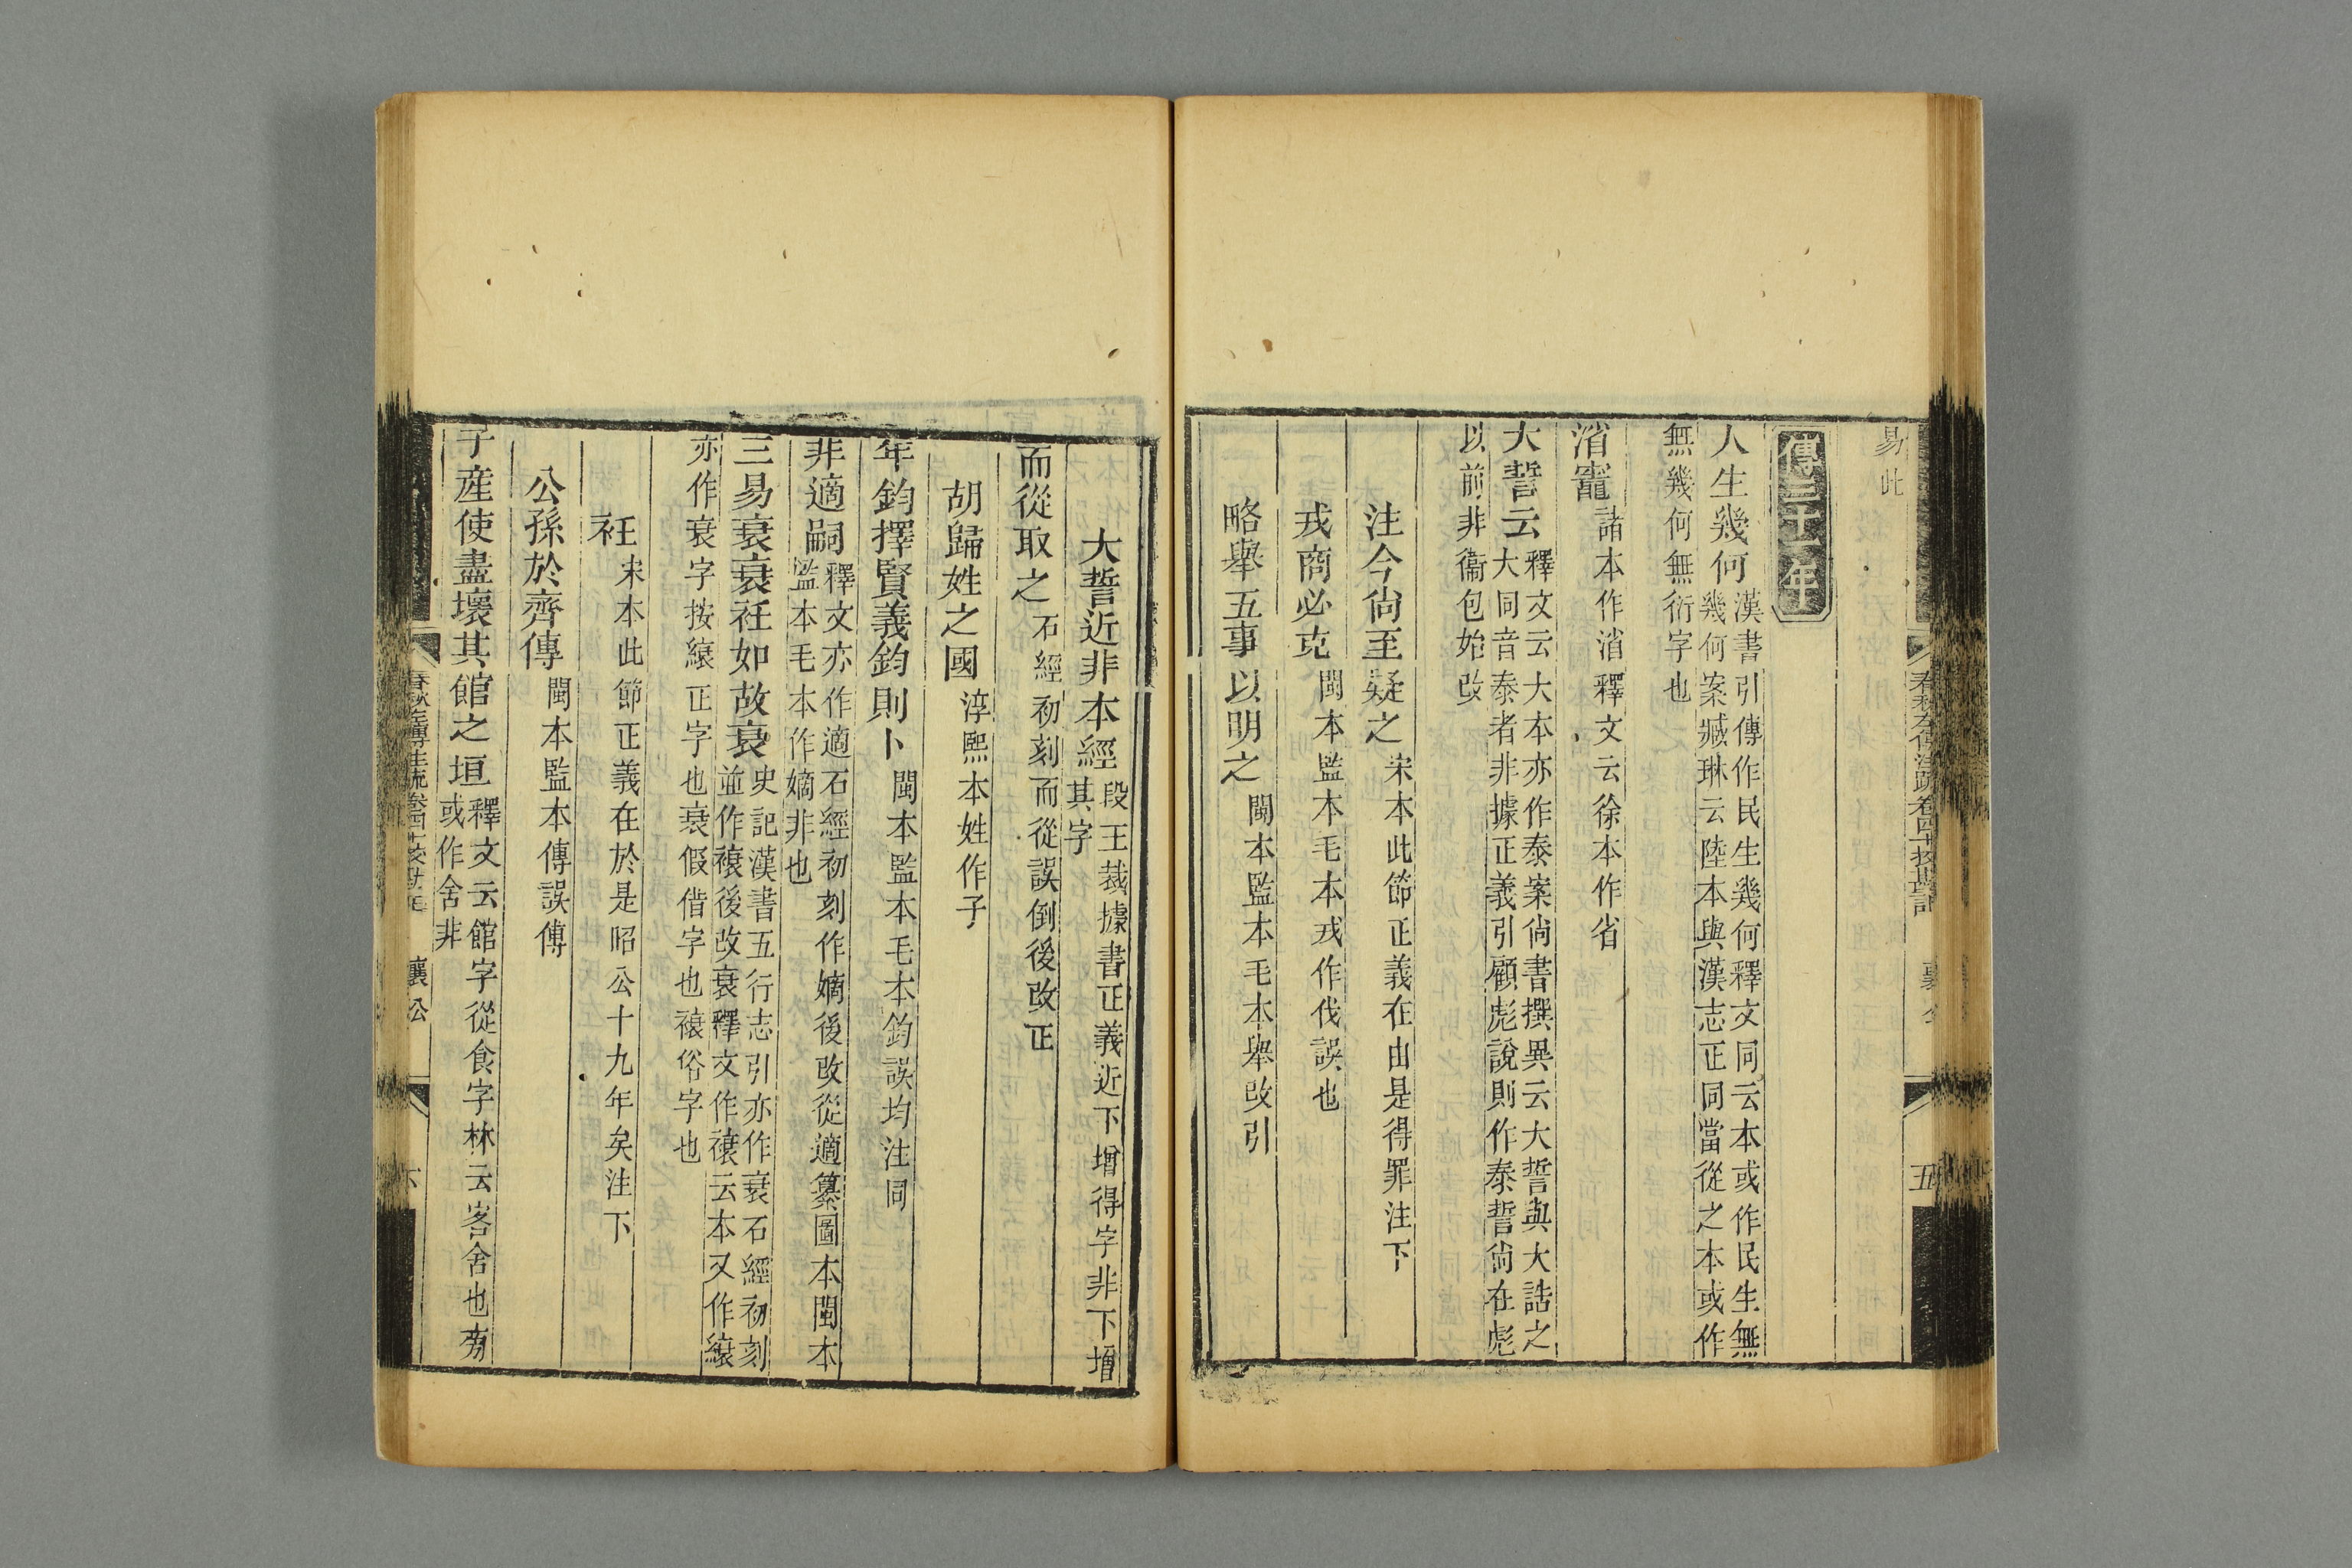 易此
傳三十一年
人生幾何
漢書引傳作民生幾何釋文同云本或作民生無
幾何案臧琳云陸本與漢志正同當從之本或作
無幾何無衍字也
渻竈
諸本作渻釋文云徐本作省
大誓云
釋文云大本亦作泰案尚書撰異云大誓與大誥之
大同音泰者非據正義引顧彪說則作泰誓尚在彪
以前非衞包始改
注今尚至疑之
宋本此節正義在由是得罪注下
戎商必克
閩本監本毛本戎作伐誤也
略舉五事以明之
閩本監本毛本舉改引
春秋左傳注疏卷四十挍勘記
襄公
五
大誓近非本經
段玉裁據書正義近下增得字非下增
其字
而從取之
石經初刻而從誤倒後改正
胡歸姓之國
淳熙本姓作子
年鈞擇賢義鈞則卜
閩本監本毛本鈞誤均注同
非適嗣
釋文亦作適石經初刻作嫡後改從適纂圖本閩本
監本毛本作嫡非也
三易衰衰衽如故衰
史記漢書五行志引亦作衰石經初刻
並作䙑後改衰釋文作䙑云本又作縗
亦作衰字按縗正字也衰假借字也䙑俗字也
衽
宋本此節正義在於是昭公十九年矣注下
公孫於齊傳
閩本監本傳誤傅
子產使盡壞其館之垣
釋文云館字從食字林云客舍也旁
或作舍非
春秋左傳注疏卷四十挍勘記
襄公
六